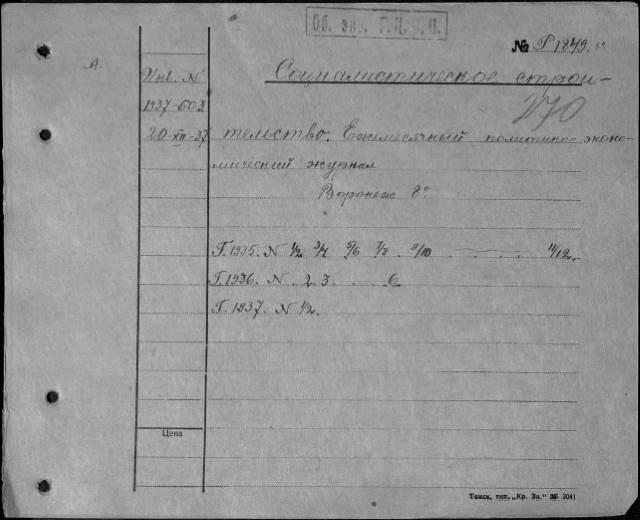 Об. экз. Г.Ц.К.П.
№ Р 1849.
А.
Инв. N
Социалистическое строи-
1937-602
270
20-XII-37
тельство. Ежемесячный политико-эконо-
мический журнал
Воронеж 8°
Г. 1935. N 1/2 3/4 5/6 7/8 9/10 . . . . 11/12.
Г. 1936. N . 2 3 . . 6
Г. 1937. N 1/2.
Цена
Томск, тип. „Кр. Зн." 3041